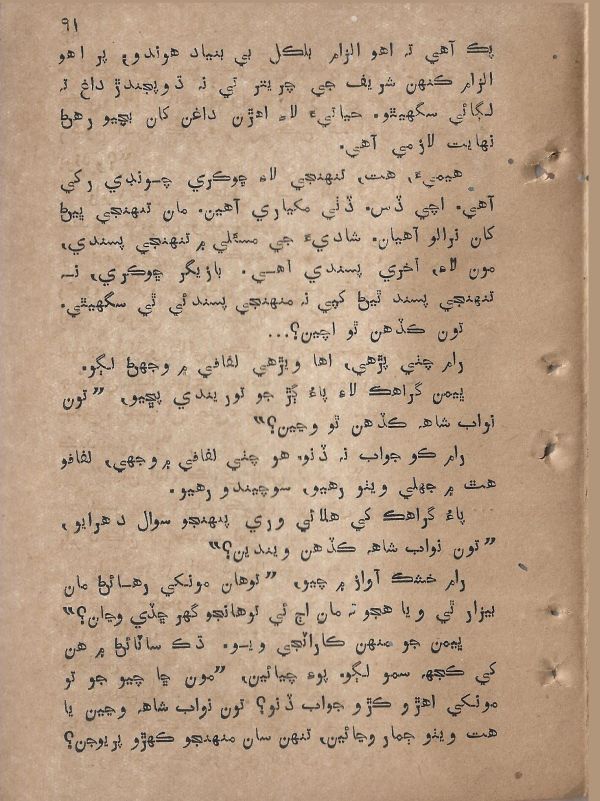 ۹۱
پڪ آهي تہ اهو الزام بلڪل بي بنياد هوندو۽ پر اهو
الزام ڪنهن شريف جي چريتر تي نہ ڌوپجندڙ داغ تہ
لڳائي سگهيٿو. حياتيءَ لاءِ اهڙن داغن کان بچيو رهڻ
نهايت لازمي آهي.
هيميءَ، هت، تنهنجي لاءِ ڇوڪري چونڊي رکي
آهي. اچي ڏس. ڏٺي مڪياري آهين. مان تنهنجي ڀيڻ
کان نرالو آهيان. شاديءَ جي مسئلي ۾ تنهنجي پسندي،
مون لاءِ، آخري پسندي آهي. بازيگر ڇوڪري، نہ
تنهنجي پسند ٿيڻ کپي نہ منهنجي پسندئي ٿي سگهيٿي.
تون ڪڏهن ٿو اچين؟...
رام چٺي پڙهي، اها ويڙهي لفافي ۾ وجهڻ لڳو.
ڀيمن گراهڪ لاءِ پاءُ ڳڙ جو توريندي پڇيو، ”تون
نواب شاهہ ڪڏهن ٿو وڃين؟“
رام ڪو جواب نہ ڏنو. هو چٺي لفافي ۾ وجهي، لفافو
هٿ ۾ جهلي ويٺو رهيو، سوچيندو رهيو.
پاءُ گراهڪ کي هلائي وري پنهنجو سوال دهرايو،
”تون نواب شاهہ ڪڏهن ويندين؟“
رام خشڪ آواز ۾ چيو، ”توهان مونکي رهائڻ مان
بيزار ٿي ويا هجو تہ مان اڄ ئي توهانجو گهر ڇڏي وڃان؟“
ڀيمن جو منهن ڪارانجي ويو. ڌڪ ساٽائڻ ۾ هن
کي ڪجهہ سمو لڳو. پوءِ چيائين، ”مون ڇا چيو جو تو
مونکي اهڙو ڪڙو جواب ڏنو؟ تون نواب شاهہ وڃين يا
هت ويٺو ڄمار وڃائين، تنهن سان منهنجو ڪهڙو پريوجن؟